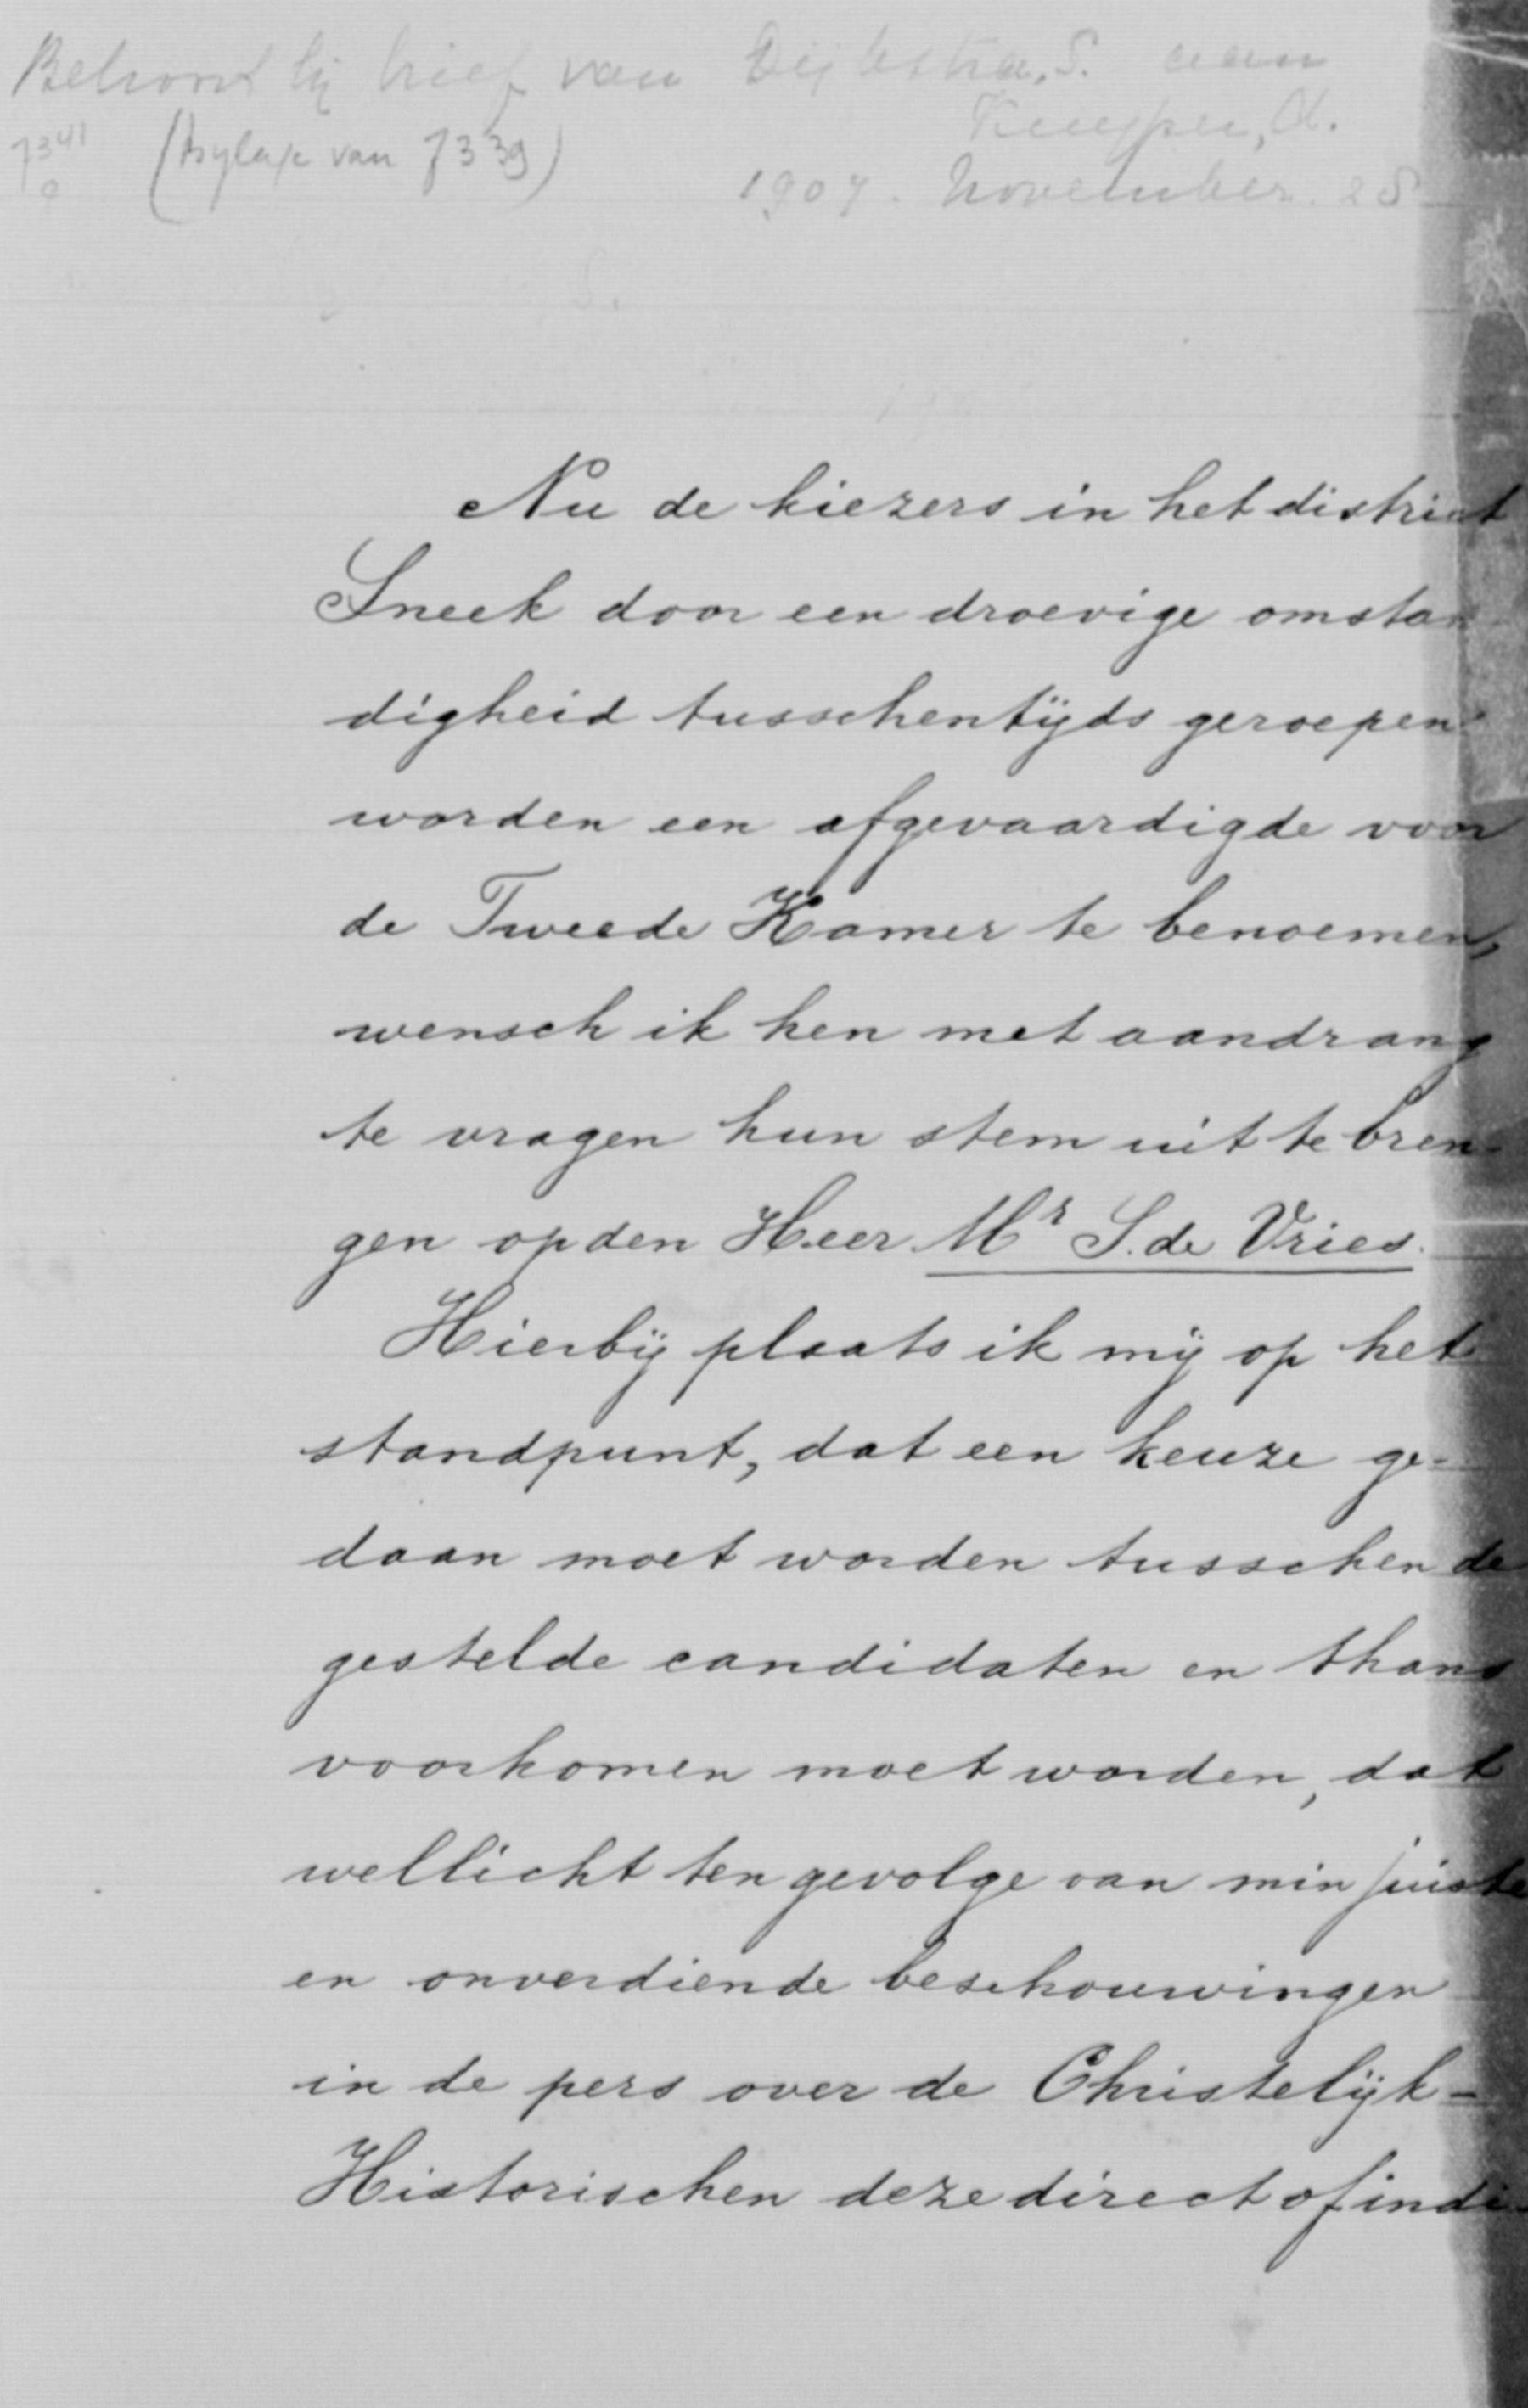 Behoort bij brief van Dijkstra, S. aan
Kuyper, A.
7341 (bylage van 7339)
1907. November. 28
Nu de kiezers in het district
Sneek door een droevige omstan
digheid tusschentijds geroepen
worden een afgevaardigde voor
de Tweede Kamer te benoemen,
wensch ik hen met aandrang
te vragen hun stem uit te bren-
gen op den Heer Mr S. de Vries.
Hierbij plaats ik mij op het
standpunt, dat een keuze ge-
daan moet worden tusschen de
gestelde candidaten en thans
voorkomen moet worden, dat
wellicht ten gevolge van min juiste
en onverdiende beschouwingen
in de pers over de Christelijk-
Historischen deze direct of indi-